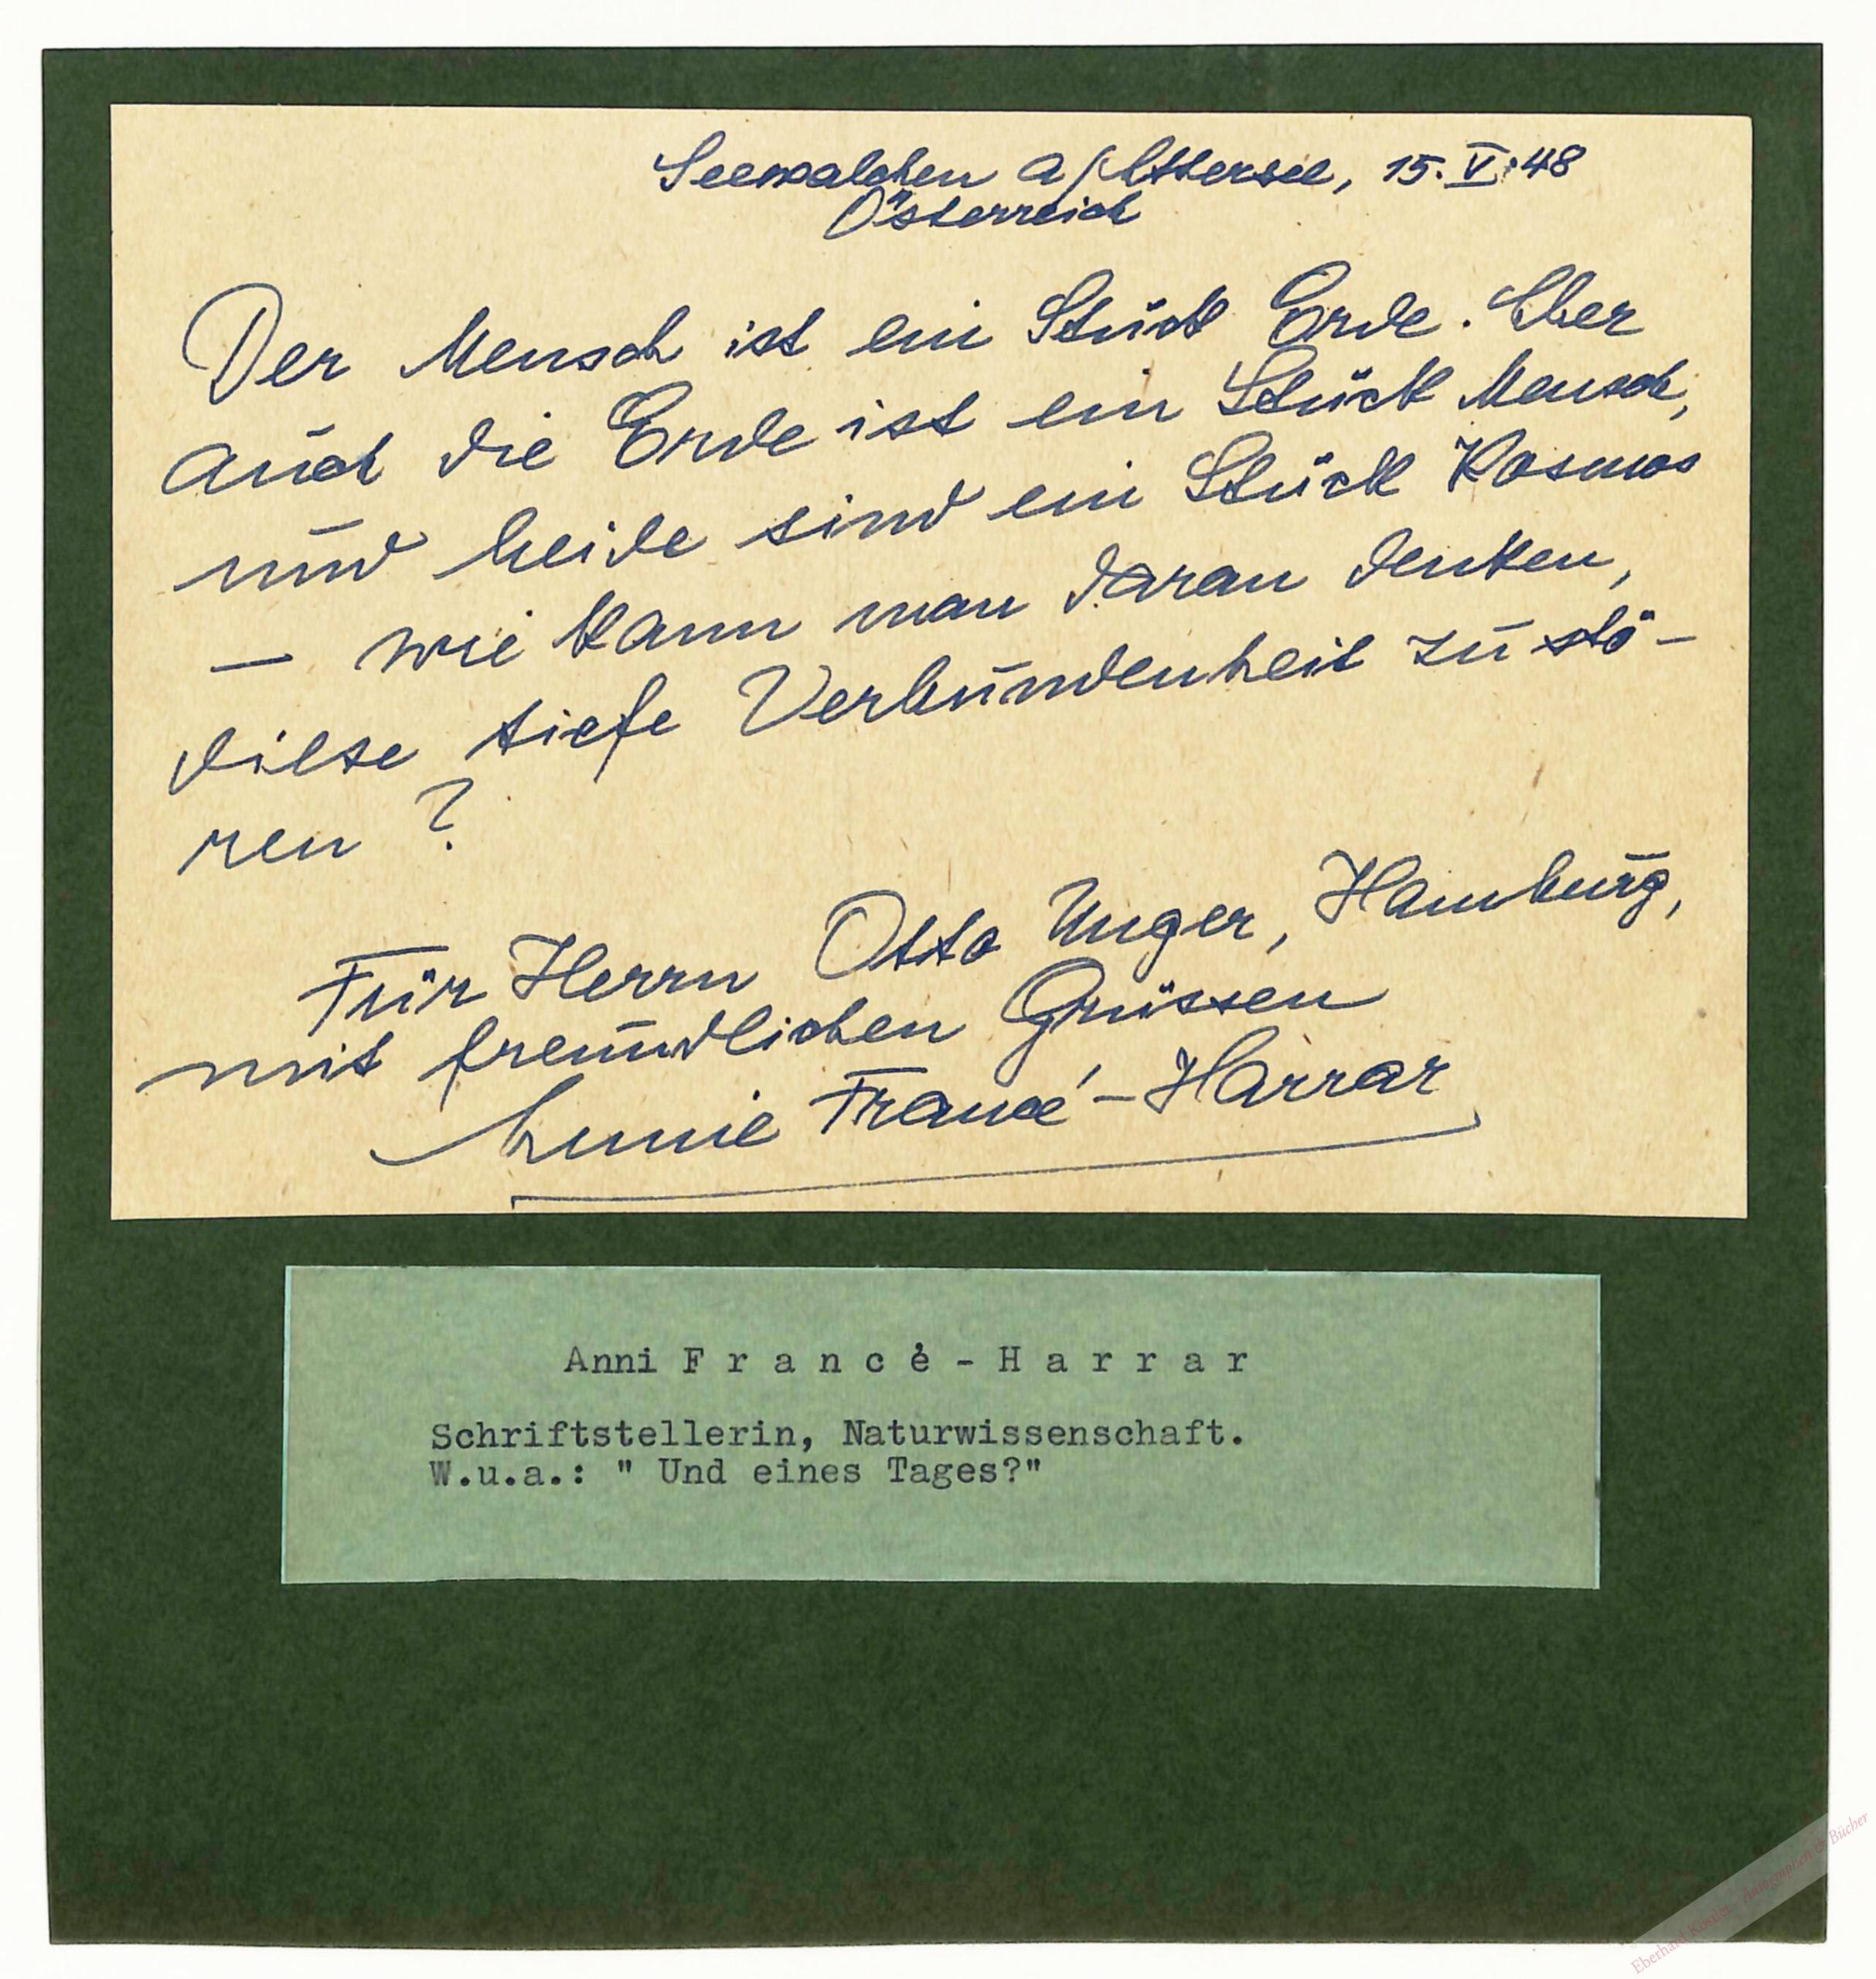 Seewalchen a/Attersee, 15. V. 48
Österreich
Der Mensch ist ein Stück Erde. Aber
auch die Erde ist ein Stück Mensch,
und beide sind ein Stück Kosmos
— wie kann man daran denken,
diese tiefe Verbundenheit zu stö-
ren?
Für Herrn Otto Unger, Hamburg,
mit freundlichen Grüssen
Annie Francé-Harrar
Anni F r a n c é - H a r r a r
Schriftstellerin, Naturwissenschaft.
W.u.a.: " Und eines Tages?"
Eberhard Köstler - Autographen & Bücher